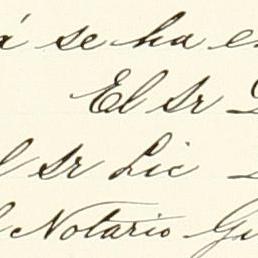 á se ha e
El Sr
l Sr Lic
l Notario Gu